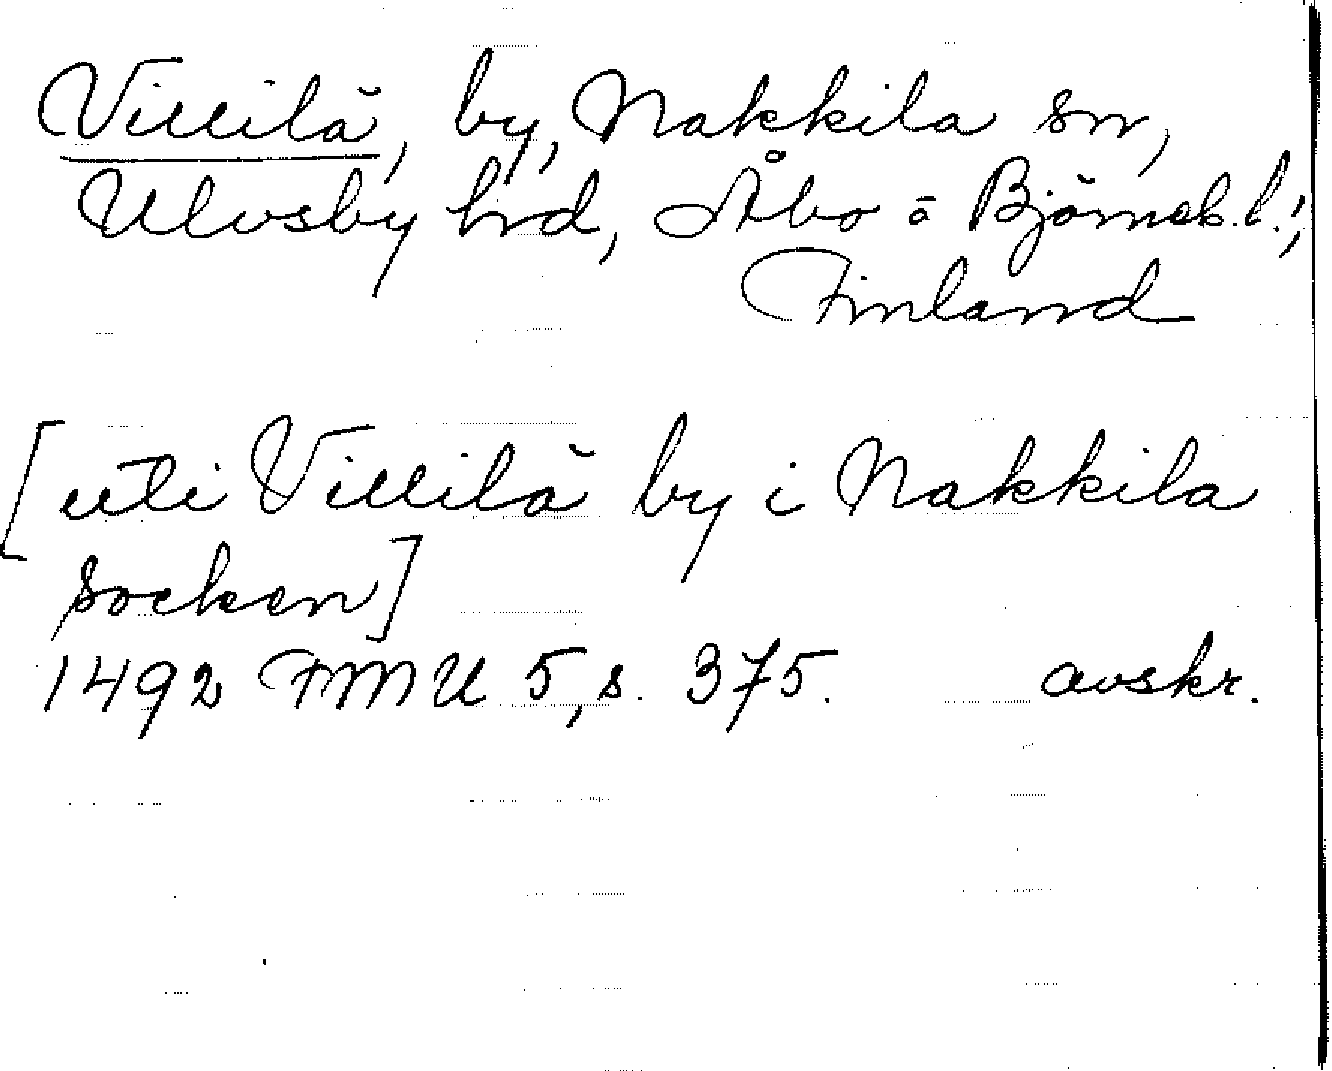 Villilä, by, Nakkila sn,
Ulvsby hrd, Åbo o Björneb. l.,
Finland
[uti Villilä by i Nakkila
socken]
1492 FMU 5, s. 375. avskr.